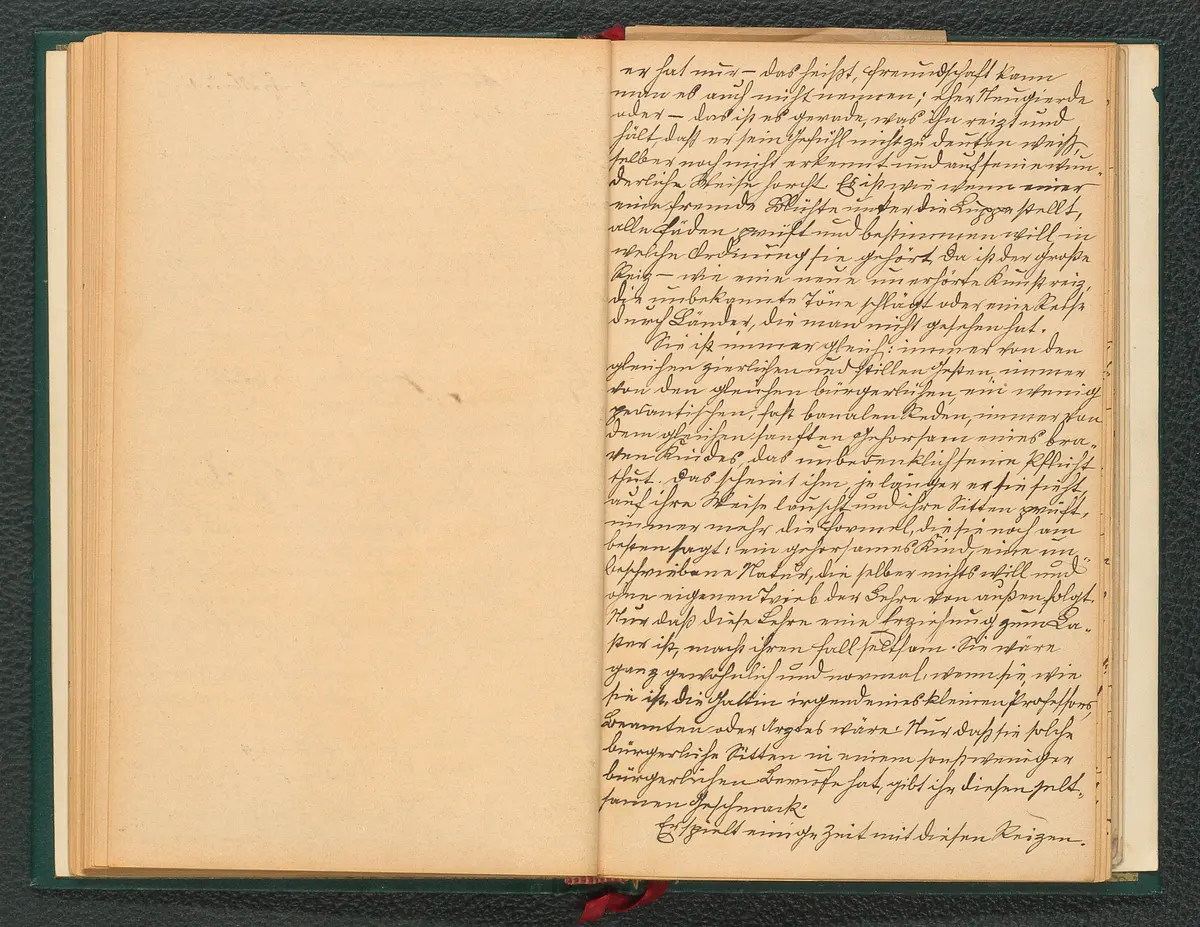 er hat nur – das heißt, Freundschaft kann
man es auch nicht nennen; eher Neugierde
oder – das ist es gerade, was ihn reizt und
hält, daß er sein Gefühl nicht zu deuten weiß,
selber noch nicht erkennt und auf seine wun-
derliche Weise horcht. Es ist wie wenn einer
eine fremde Blüthe unter die Luppe stellt,
alle Fäden prüft und bestimmen will, in
welche Ordnung sie gehört. Da ist der große
Reiz – wie eine neue unerhörte Kunst reiz,
die unbekannte Töne schlägt oder eine Reise
durch Länder, die man nicht gesehen hat.
Sie ist immer gleich: immer von den
gleichen zierlichen und stillen Gesten, immer
von den gleichen bürgerlichen ein wenig
pedantischen, fast banalen Reden, immer von
dem gleichen sanften Gehorsam eines bra-
ven Kindes, das unbedenklich seine Pflicht
thut. Das scheint ihm, je länger er sie sieht,
auf ihre Weise lauscht und ihre Sitten prüft,
immer mehr die Formel, die sie noch am
besten sagt: ein gehorsames Kind, eine un-
beschriebene Natur, die selber nichts will und
ohne eigenen Trieb der Lehre von außen folgt.
Nur daß diese Lehre eine Erziehung zum La-
ster ist, macht ihren Fall seltsam. Sie wäre
ganz gewöhnlich und normal, wenn sie, wie
sie ist, die Gattin irgend eines kleinen Professors,
Beamten oder Arztes wäre. Nur daß sie solche
bürgerliche Sitten in einem sonst weniger
bürgerlichen Berufe hat, gibt ihr diesen selt-
samen Geschmack.
Er spielt einige Zeit mit diesen Reizen.